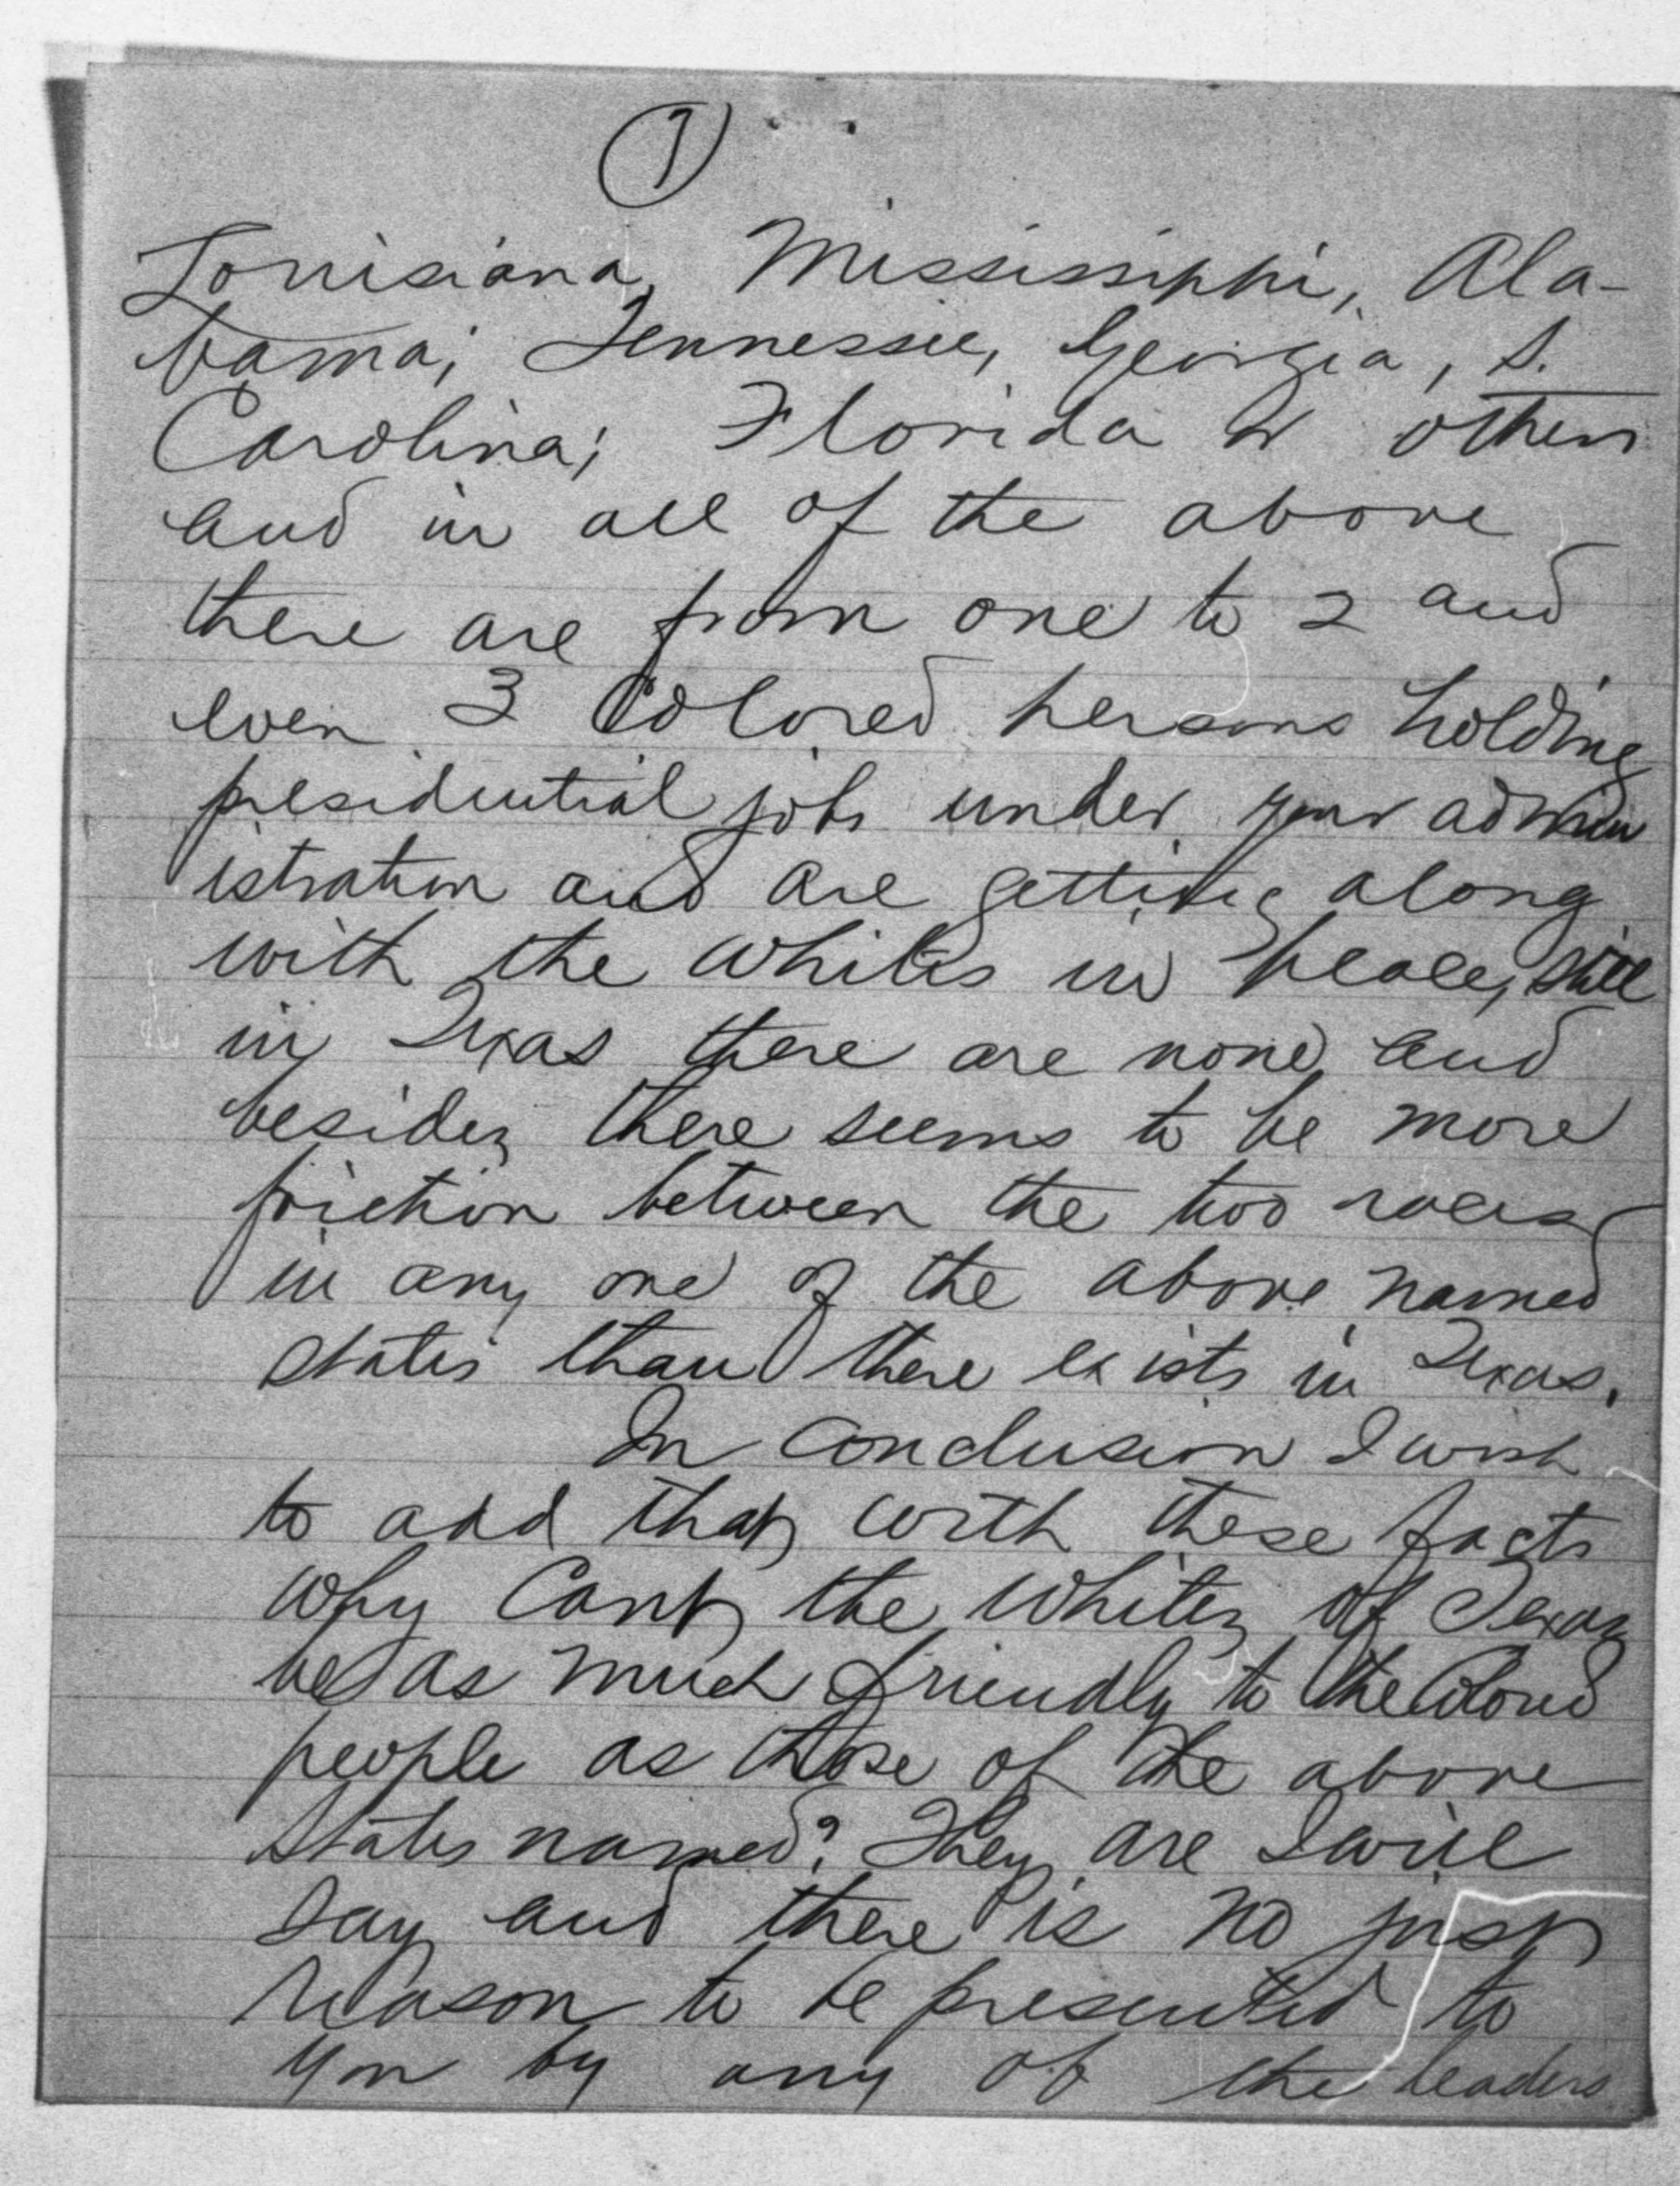 7
Louisiana, Mississippi, Ala-
bama; Tennessee, Georgia, S.
Carolina; Florida & others
and in all of the above
there are from one to 2 and
even 3 Colored persons holding
presidential jobs under your admin
istration and are getting along
with the whites in peace, still
in Texas there are none and
besides there seems to be more
friction between the two races
in any one of the above named
states than there exists in Texas.
In conclusion I wish
to add that with these facts
why Cant the whites of Texas
be as much friendly to the Colored
people as those of the above
States named? They are I will
say and there is no just
reason to be presented to
you by any of the leaders